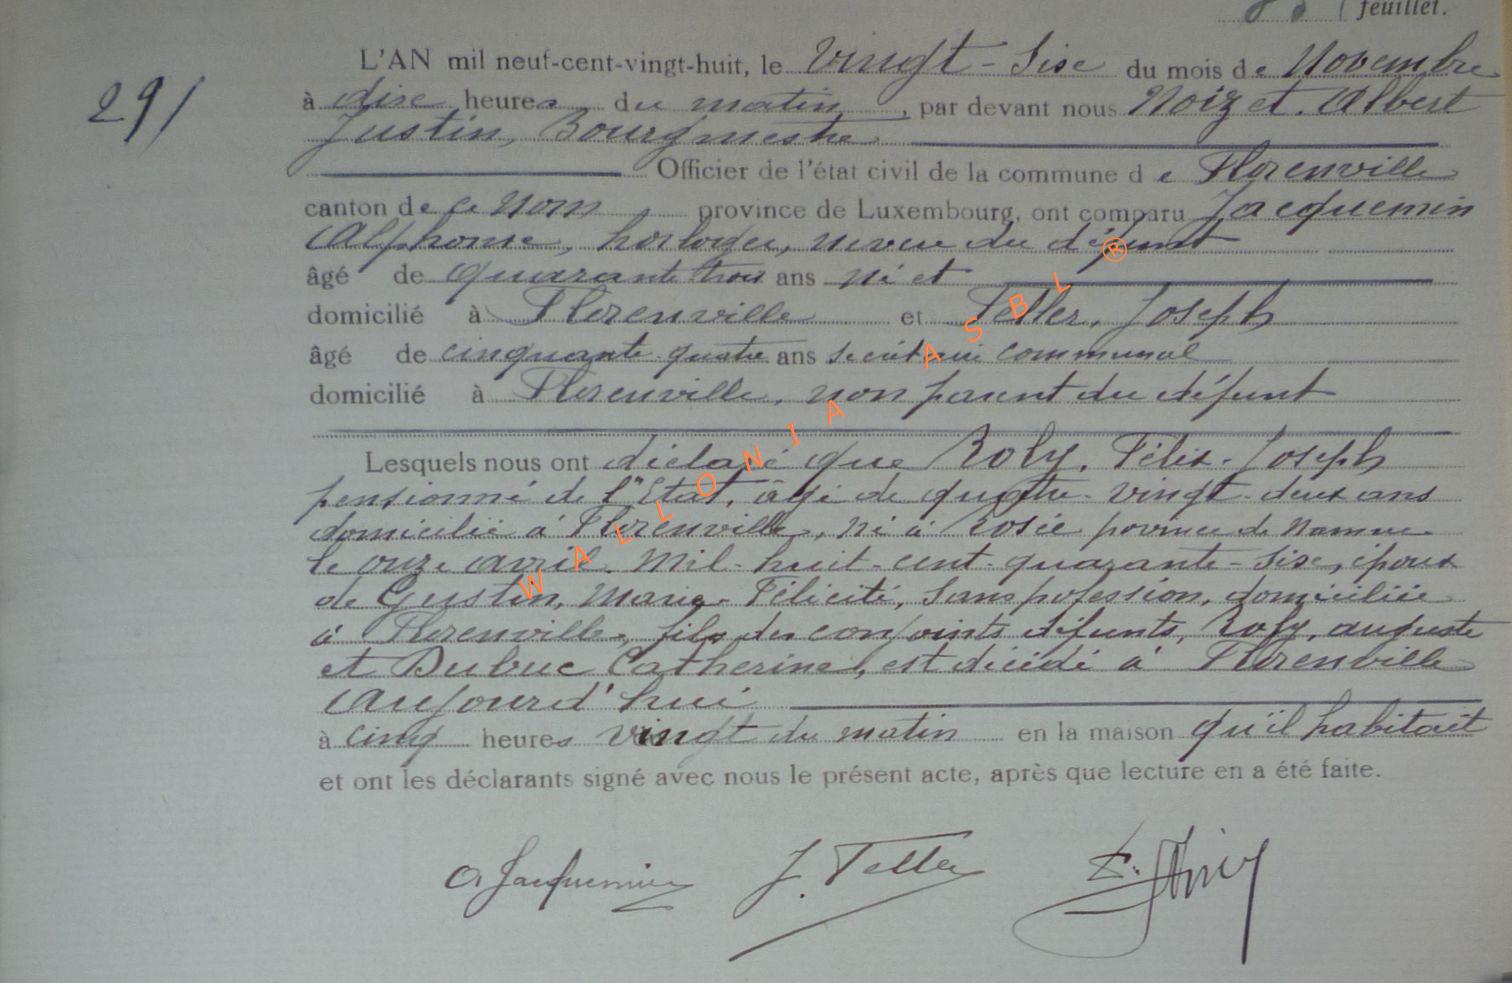 feuillet.
L'AN mil neuf-cent-vingt-huit, le vingt-sise du mois de Novembre
29/
à dise heures du matin, par devant nous Noizet. Albert
Justin, Bourgmestre
Officier de l'état civil de la commune de Florenville
canton de ce Nom province de Luxembourg, ont comparu Jacquemin
Alphonse, horloger, neveu du défunt
âgé de quarante trois ans né et
domicilié à Florenville et Feller, Joseph
âgé de cinquante quatre ans secrétaire communal
domicilié à Florenville, non parent du défunt
Lesquels nous ont déclaré que Roly, Félix-Joseph
pensionné de l'Etat, âgé de quatre-vingt-deux ans
domicilié à Florenville, né à Rosée province de Namur
le onze avril mil-huit-cent-quarante-sise, époux
de Gustin, Marie-Félicité, sans profession, domiciliée
à Florenville, fils des conjoints défunts, Roly, auguste
et Dubuc Catherine, est décédé à Florenville
aujourd'hui
à cinq heures vingt du matin en la maison qu'il habitait
et ont les déclarants signé avec nous le présent acte, après que lecture en a été faite.
A. Jacquemin J. Feller
WALLONIA ASBL ®